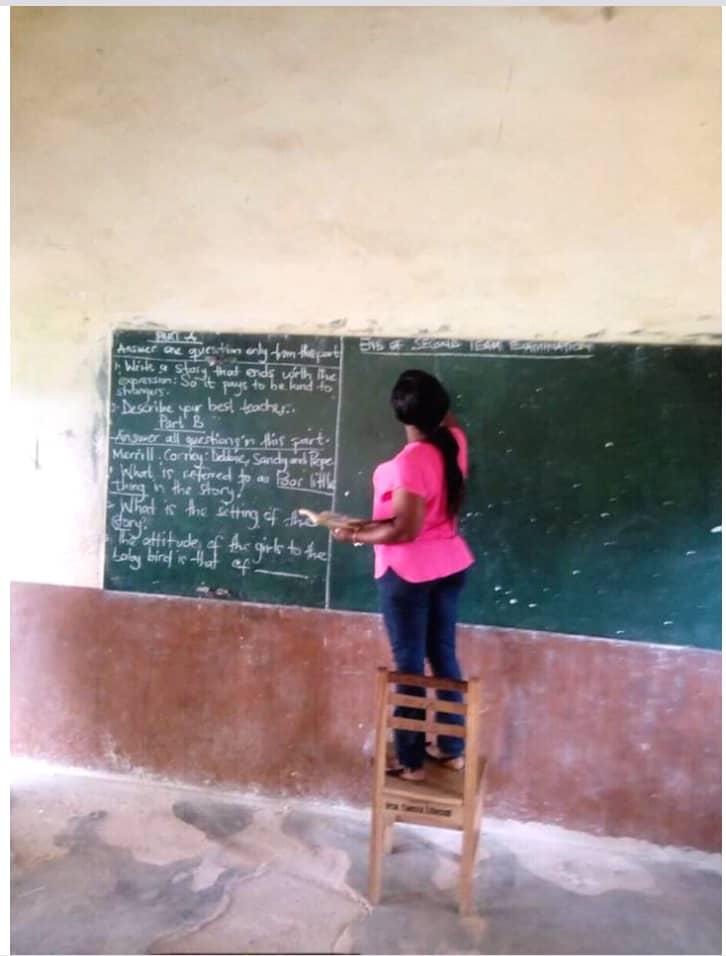 PART A
Answer one question only from this part
1. Write a story that ends with the
expression: So it pays to be kind to
strangers.
2. Describe your best teacher.
Part B
Answer all questions in this part.
Merrill. Corney: Debbie, Sandy and Pepe
1 What is referred to as Poor little
thing in the story?
2 What is the setting of the
story?
The attitude of the girls to the
baby bird is that of ______
END OF SECOND TERM EXAMINATION